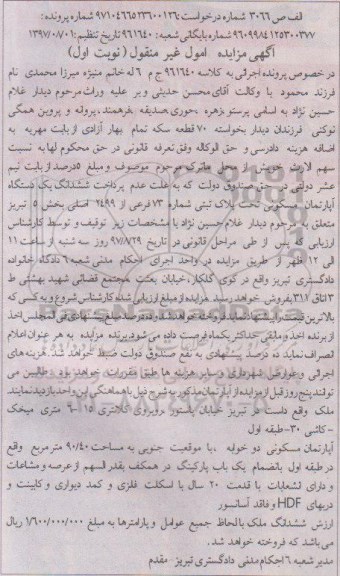 الف ص ۳۰۶۶ شماره درخواست: ۹۷۱۰۴۶۶۵۲۳۶۰۰۱۲۶ شماره پرونده:
۹۶۰۹۹۸۴۱۲۵۳۰۰۳۷۷ شماره بایگانی شعبه: ۹۶۱۶۴۰ تاریخ تنظیم: ۱۳۹۷/۰۸/۰۱
آگهی مزایده اموال غیر منقول (نوبت اول)
در خصوص پرونده اجرائی به کلاسه ۹۶۱۶۴۰ ج م ۶ له خانم منیژه میرزا محمدی نام
فرزند محمود با وکالت آقای محسن حدیثی و بر علیه وراث مرحوم دیدار غلام
حسین نژاد به اسامی پرستو، زهره، حوری، صدیقه، فرهمند، پروانه و پروین همگی
توکنی فرزندان دیدار بخواسته ۷۰ قطعه سکه تمام بهار آزادی از بابت مهریه به
اضافه هزینه دادرسی و حق الوکاله وفق تعرفه قانونی در حق محکوم لها به نسبت
سهم الارث خویش از محل ماترک مرحوم موصوف و مبلغ ۵ درصد از بابت نیم
عشر دولتی در حق صندوق دولت که به علت عدم پرداخت ششدانگ یک دستگاه
آپارتمان مسکونی تحت پلاک ثبتی شماره ۷۳ فرعی از ۲۴۹۹ اصلی بخش ۵ تبریز
متعلق به مرحوم دیدار غلام حسین نژاد با مشخصات زیر توقیف و توسط کارشناس
ارزیابی که پس از طی مراحل قانونی در تاریخ ۹۷/۸/۲۹ روز سه شنبه از ساعت ۱۱
الی ۱۲ ظهر از طریق مزایده در واحد اجرای احکام مدنی شعبه ۶ دادگاه خانواده
دادگستری تبریز واقع در کوی گلکار، خیابان بعثت مجتمع قضائی شهید بهشتی ط
۳ اتاق ۳۱۷ بفروش خواهد رسید. مزایده از مبلغ ارزیابی شده کارشناسی شروع و به کسی که
بالاترین قیمت را پیشنهاد نماید فروخته خواهد شد و ده درصد مبلغ پیشنهادی فی المجلس اخذ
از برنده اخذ و مابقی حداکثر یکماه فرصت داده می شود برنده مزایده به هر عنوان اعلام
انصراف نماید ده درصد پیشنهادی به نفع صندوق دولت ضبط خواهد شد. هزینه های
اجرائی و عوارض شهرداری و سایر هزینه ها طبق مقررات خواهد بود. طالبین می
توانند پنج روز قبل از مزایده از آپارتمان مذکور به شرح ذیل با هماهنگی این واحد بازدید نمایند.
ملک واقع است در تبریز خیابان پاستور روبروی کلانتری ۱۵ - ۶ متری میخک
- کاشی ۳۰ - طبقه اول
آپارتمان مسکونی دو خوابه ، با موقعیت جنوبی به مساحت ۹۰/۴۰ متر مربع واقع
در طبقه اول بانضمام یک باب پارکینگ در همکف بقدر السهم از عرصه و مشاعات
و دارای انشعابات با قدمت ۲۰ سال با اسکلت فلزی و کمد دیواری و کابینت و
دربهای HDF و فاقد آسانسور
ارزش ششدانگ ملک بالحاظ جمیع عوامل و پارامترها به مبلغ ۱/۶۰۰/۰۰۰/۰۰۰ ریال
می باشد که فروخته خواهد شد.
مدیر شعبه ۶ احکام مدنی دادگستری تبریز - مقدم